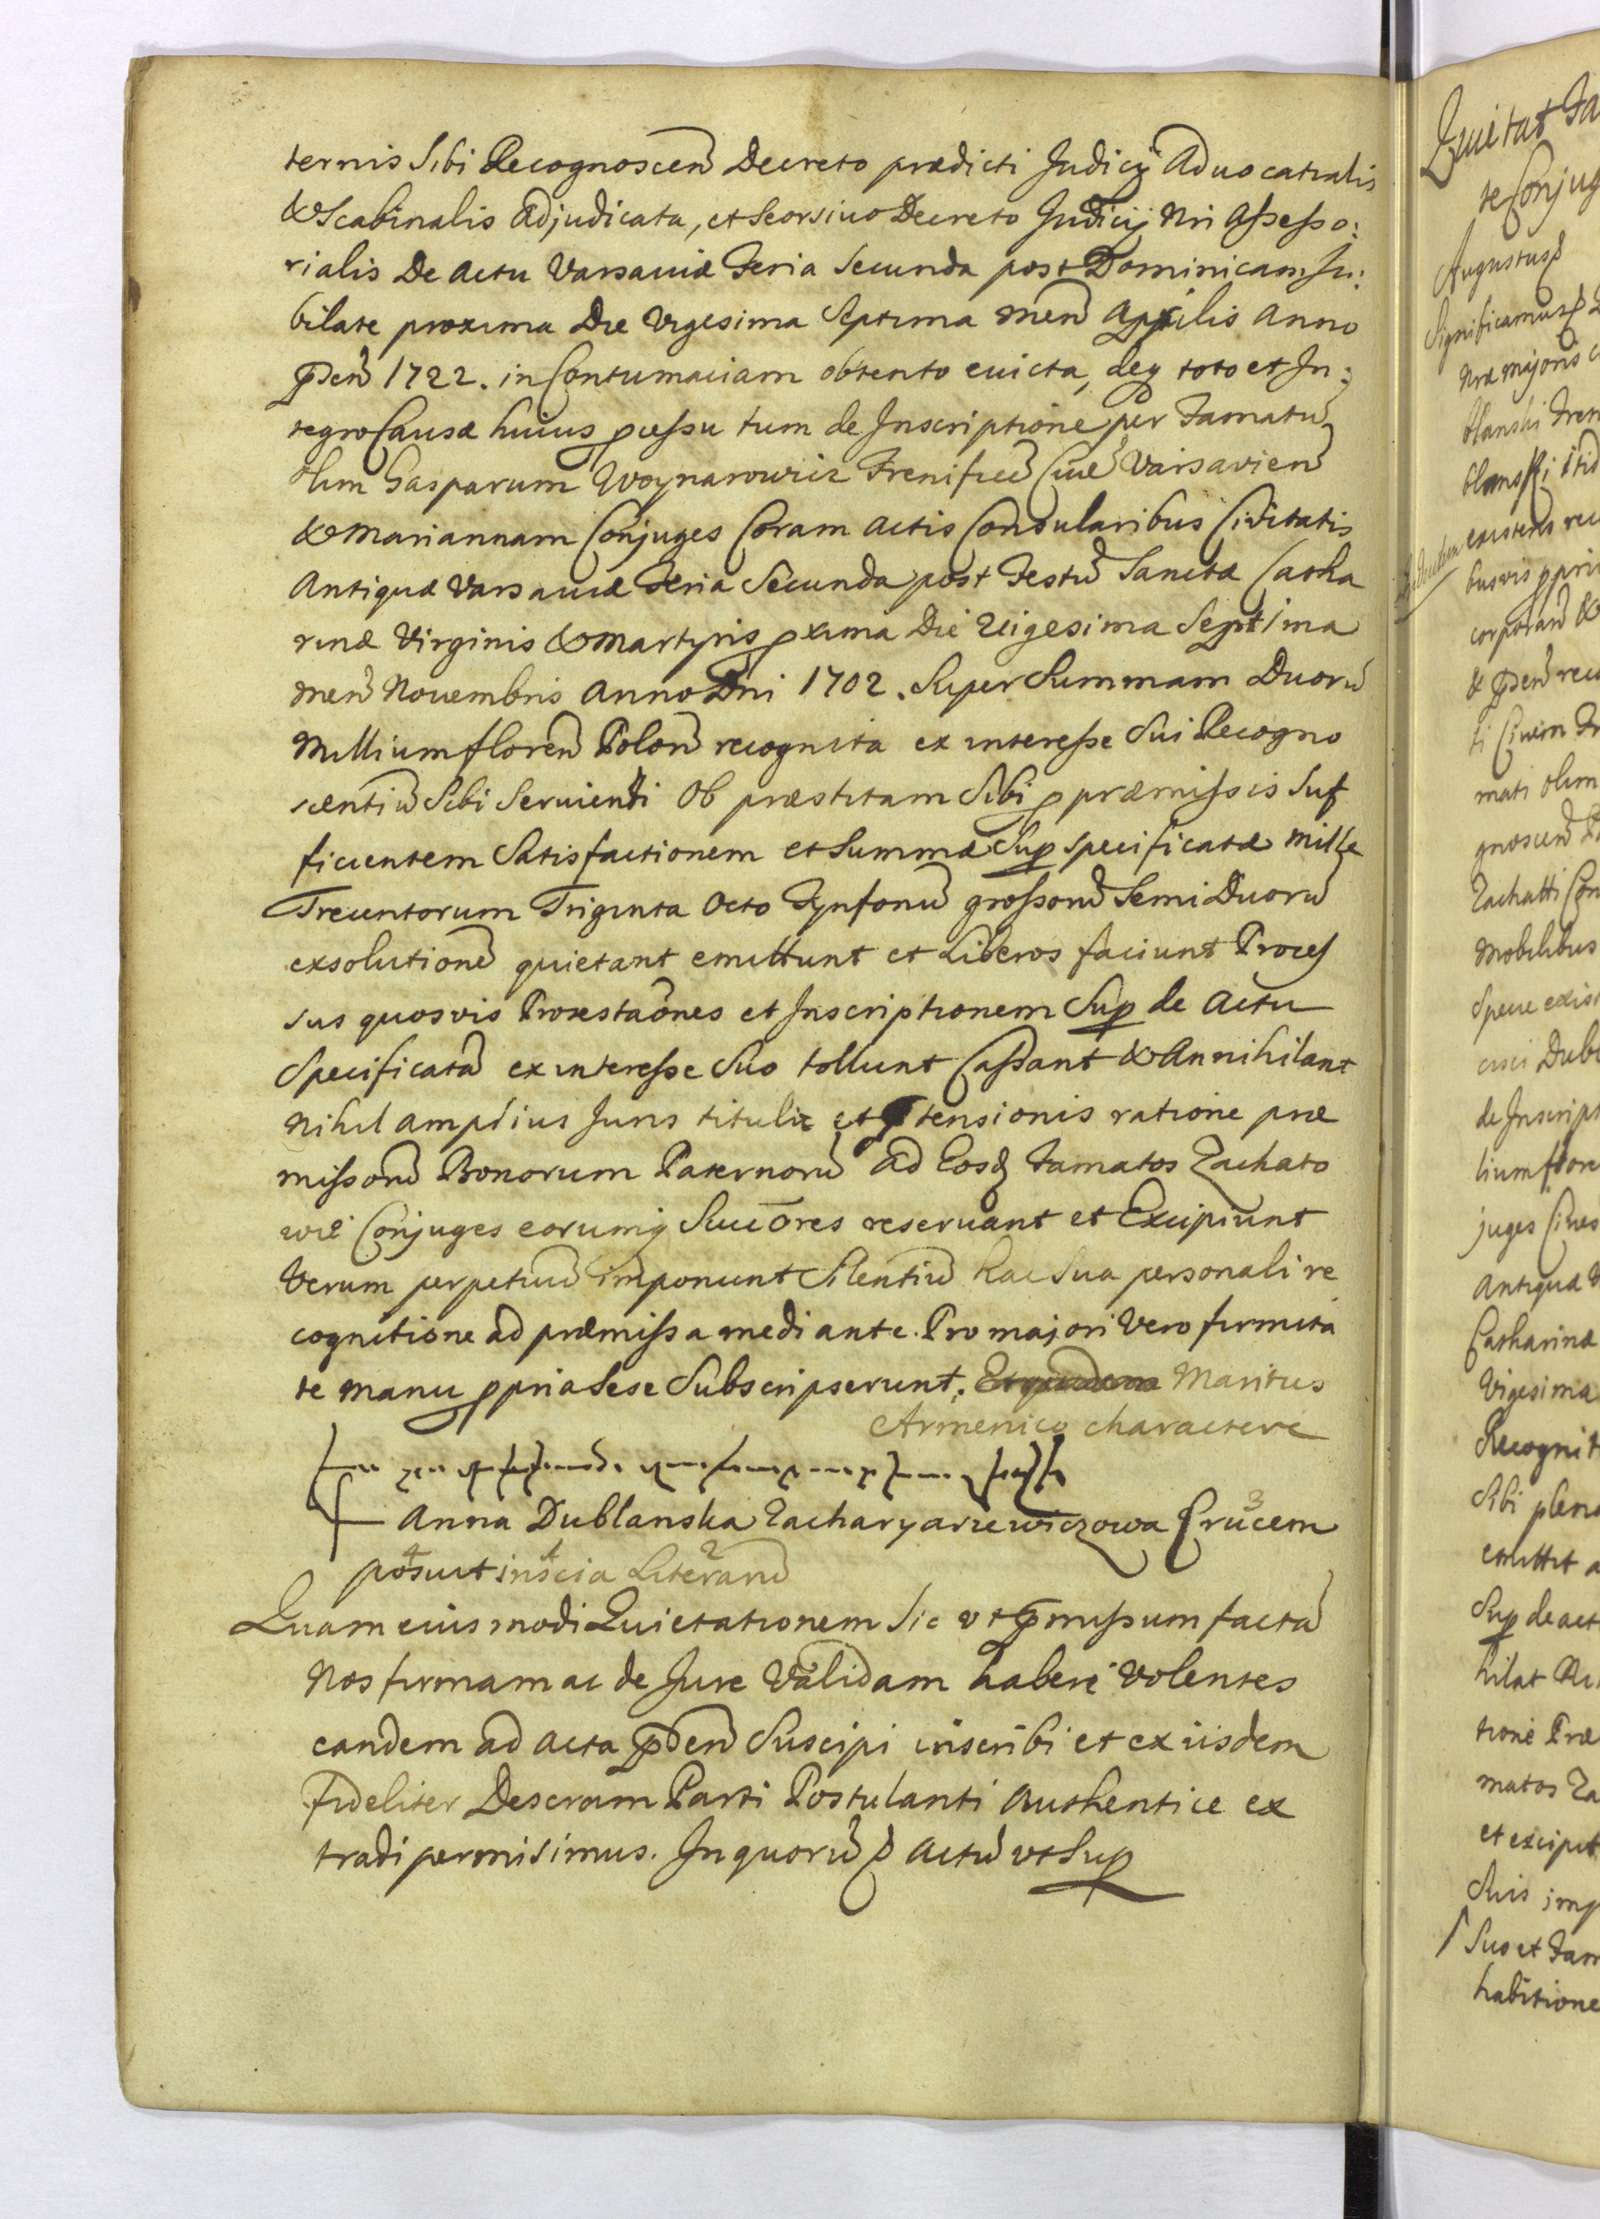 ternis Sibi Recognoscen Decreto prædicti Judicij Aduocatialis
& Scabinalis Adjudicata, et Seorsivo Decreto Judicij Nri Assesso:
rialis De Actu Varsaviæ Feria Secunda post Dominicam Ju:
bilate proxima Die Vigesima Septima Men Aprilis Anno
pđen 1722. in Contumaciam obtento evicta, deq toto et In:
tegro Causæ huius pcessu tum de Inscriptione per Famatu
olim Gasparum Woynarowicz Frenifice Cive Varsavien
& Mariannam Conjuges Coram Actis Consularibus Civitatis
Antiquæ Varsaviæ Feria Secunda post Festu Sanctæ Catha
rinæ Virginis & Martyris pxima Die Vigesima Septima
Men Novembris Anno Dni 1702. Super Summam Duoru
Millium floren Polon recognita ex interesse Sui Recogno
scentiu Sibi Serviendi Ob præstitam Sibi p præmissis Suf
ficientem Satisfactionem et Summæ Sup Specificatæ Mille
Trecentorum Triginta Octo Tynfonu grossoru Semi Duoru
exsolutione quietant emittunt et Liberos faciunt Proces
sus quosvis Protestaones et Inscriptionem Sup de Actu
Specificata ex interesse Suo tollunt Cassant & Annihilant
Nihil amplius Juris tituli et ptensionis ratione præ
missoru Bonorum Paternoru ad Eosd Famatos Zachato
wie Conjuges eorumq Succores reservant et Excipiunt
Verum perpetuu imponunt Silentiu hac Sua personali re
cognitione ad præmissa mediante. Pro majori Vero firmita
te manu ppria Sese Subscripserunt. Maritus
Armenico charactere
Anna Dublanska Zacharyaszewiczowa Crucem 3
posuit 4 inscia 1 Literaru 2
Quam eiusmodi Quietationem Sic vt pmissum facta
Nos firmam ac de Jure Validam habere Volentes
eandem ad Acta pđen Suscipi inscribi et ex iisdem
fideliter Descram Parti Postulanti Authentice ex
tradi permisimus. In quoru p Actu vt Sup
Quietat Fa
te Conjug
Augustus
Significamus
Nræ Majoris
existens
Zachatti Con
Mobilibus
Specie exis
de Inscript
lium flore
juges Cives
Antiquæ V
Catharinæ
Vigesima
Recognit
Sibi plen
emittit a
Sup de act
hilat
tione Præ
matos Za
et excipit
Suis imp
Suo et Fam
habitione